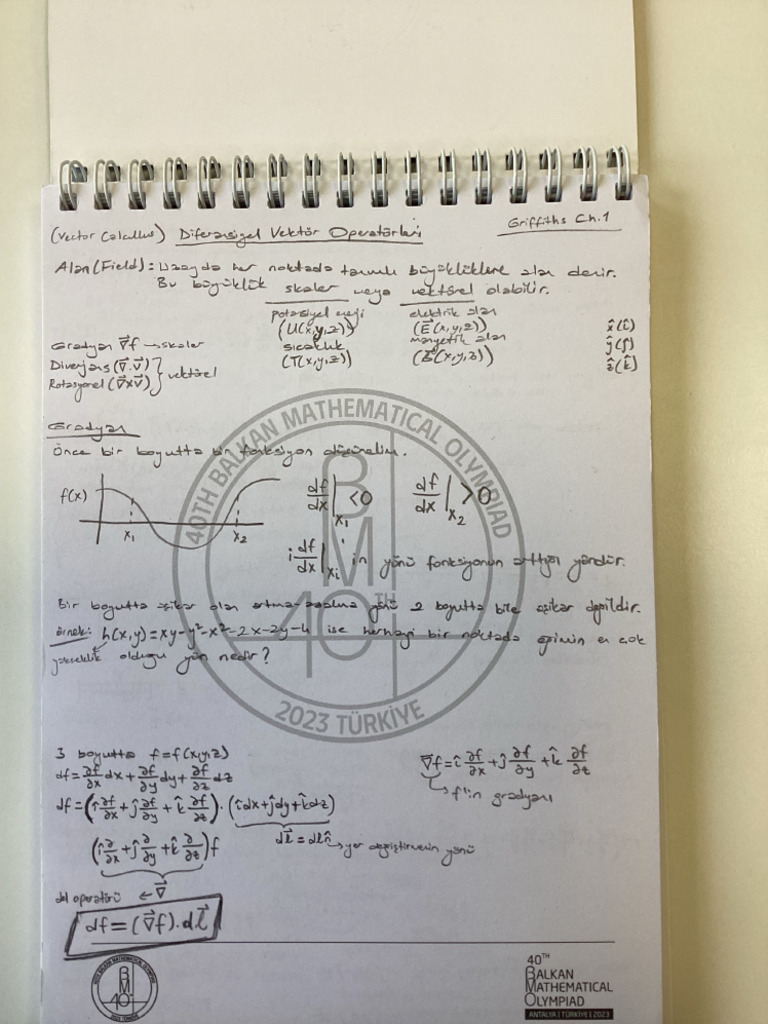 (Vector Calculus) Diferansiyel Vektör Operatörleri
Griffiths Ch.1
Alan (Field): Uzayda her noktada tanımlı büyüklüklere alan denir.
Bu büyüklük skaler veya vektörel olabilir.
potansiyel enerji
(U(x,y,z))
sıcaklık
(T(x,y,z))
elektrik alan
(E⃗(x,y,z))
manyetik alan
(B⃗(x,y,z))
x̂(î)
ŷ(ĵ)
ẑ(k̂)
Gradyan ∇⃗f → skaler
Diverjans (∇⃗.v⃗)
Rotasyonel (∇⃗xv⃗)
} vektörel
Gradyan
Önce bir boyutta bir fonksiyon düşünelim.
f(x)
x₁
x₂
df/dx|x₁ <0
df/dx|x₂ >0
i df/dx|xi 'in yönü fonksiyonun arttığı yöndür.
Bir boyutta aşikar olan artma-azalma yönü 2 boyutta bile aşikar değildir.
örnek: h(x,y)=xy-y²-x²-2x-2y-4 ise herhangi bir noktada eğimin en çok
yükseklik
olduğu yön nedir?
3 boyutta f=f(x,y,z)
df=∂f/∂x dx+∂f/∂y dy+∂f/∂z dz
df=(î ∂f/∂x+ĵ ∂f/∂y+k̂ ∂f/∂z)·(îdx+ĵdy+k̂dz)
dl⃗=dl n̂ → yer değiştirmenin yönü
(î ∂/∂x+ĵ ∂/∂y+k̂ ∂/∂z)f
del operatörü ← ∇⃗
df=(∇⃗f).dl⃗
∇⃗f=î ∂f/∂x+ĵ ∂f/∂y+k̂ ∂f/∂z
→ f'in gradyanı
40TH BALKAN MATHEMATICAL OLYMPIAD
BM
40TH
2023 TÜRKİYE
40TH
BALKAN
MATHEMATICAL
OLYMPIAD
ANTALYA | TÜRKİYE | 2023